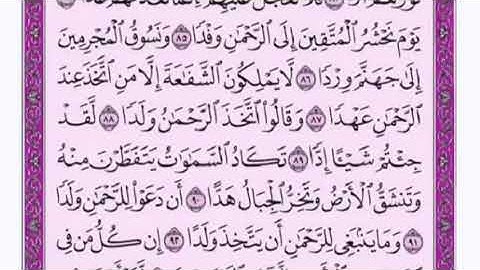 يَوْمَ نَحْشُرُ ٱلْمُتَّقِينَ إِلَى ٱلرَّحْمَٰنِ وَفْدًا ٨٥ وَنَسُوقُ ٱلْمُجْرِمِينَ
إِلَىٰ جَهَنَّمَ وِرْدًا ٨٦ لَّا يَمْلِكُونَ ٱلشَّفَٰعَةَ إِلَّا مَنِ ٱتَّخَذَ عِندَ
ٱلرَّحْمَٰنِ عَهْدًا ٨٧ وَقَالُوا۟ ٱتَّخَذَ ٱلرَّحْمَٰنُ وَلَدًا ٨٨ لَّقَدْ
جِئْتُمْ شَيْـًٔا إِدًّا ٨٩ تَكَادُ ٱلسَّمَٰوَٰتُ يَتَفَطَّرْنَ مِنْهُ
وَتَنشَقُّ ٱلْأَرْضُ وَتَخِرُّ ٱلْجِبَالُ هَدًّا ٩٠ أَن دَعَوْا۟ لِلرَّحْمَٰنِ وَلَدًا
٩١ وَمَا يَنۢبَغِى لِلرَّحْمَٰنِ أَن يَتَّخِذَ وَلَدًا ٩٢ إِن كُلُّ مَن فِى